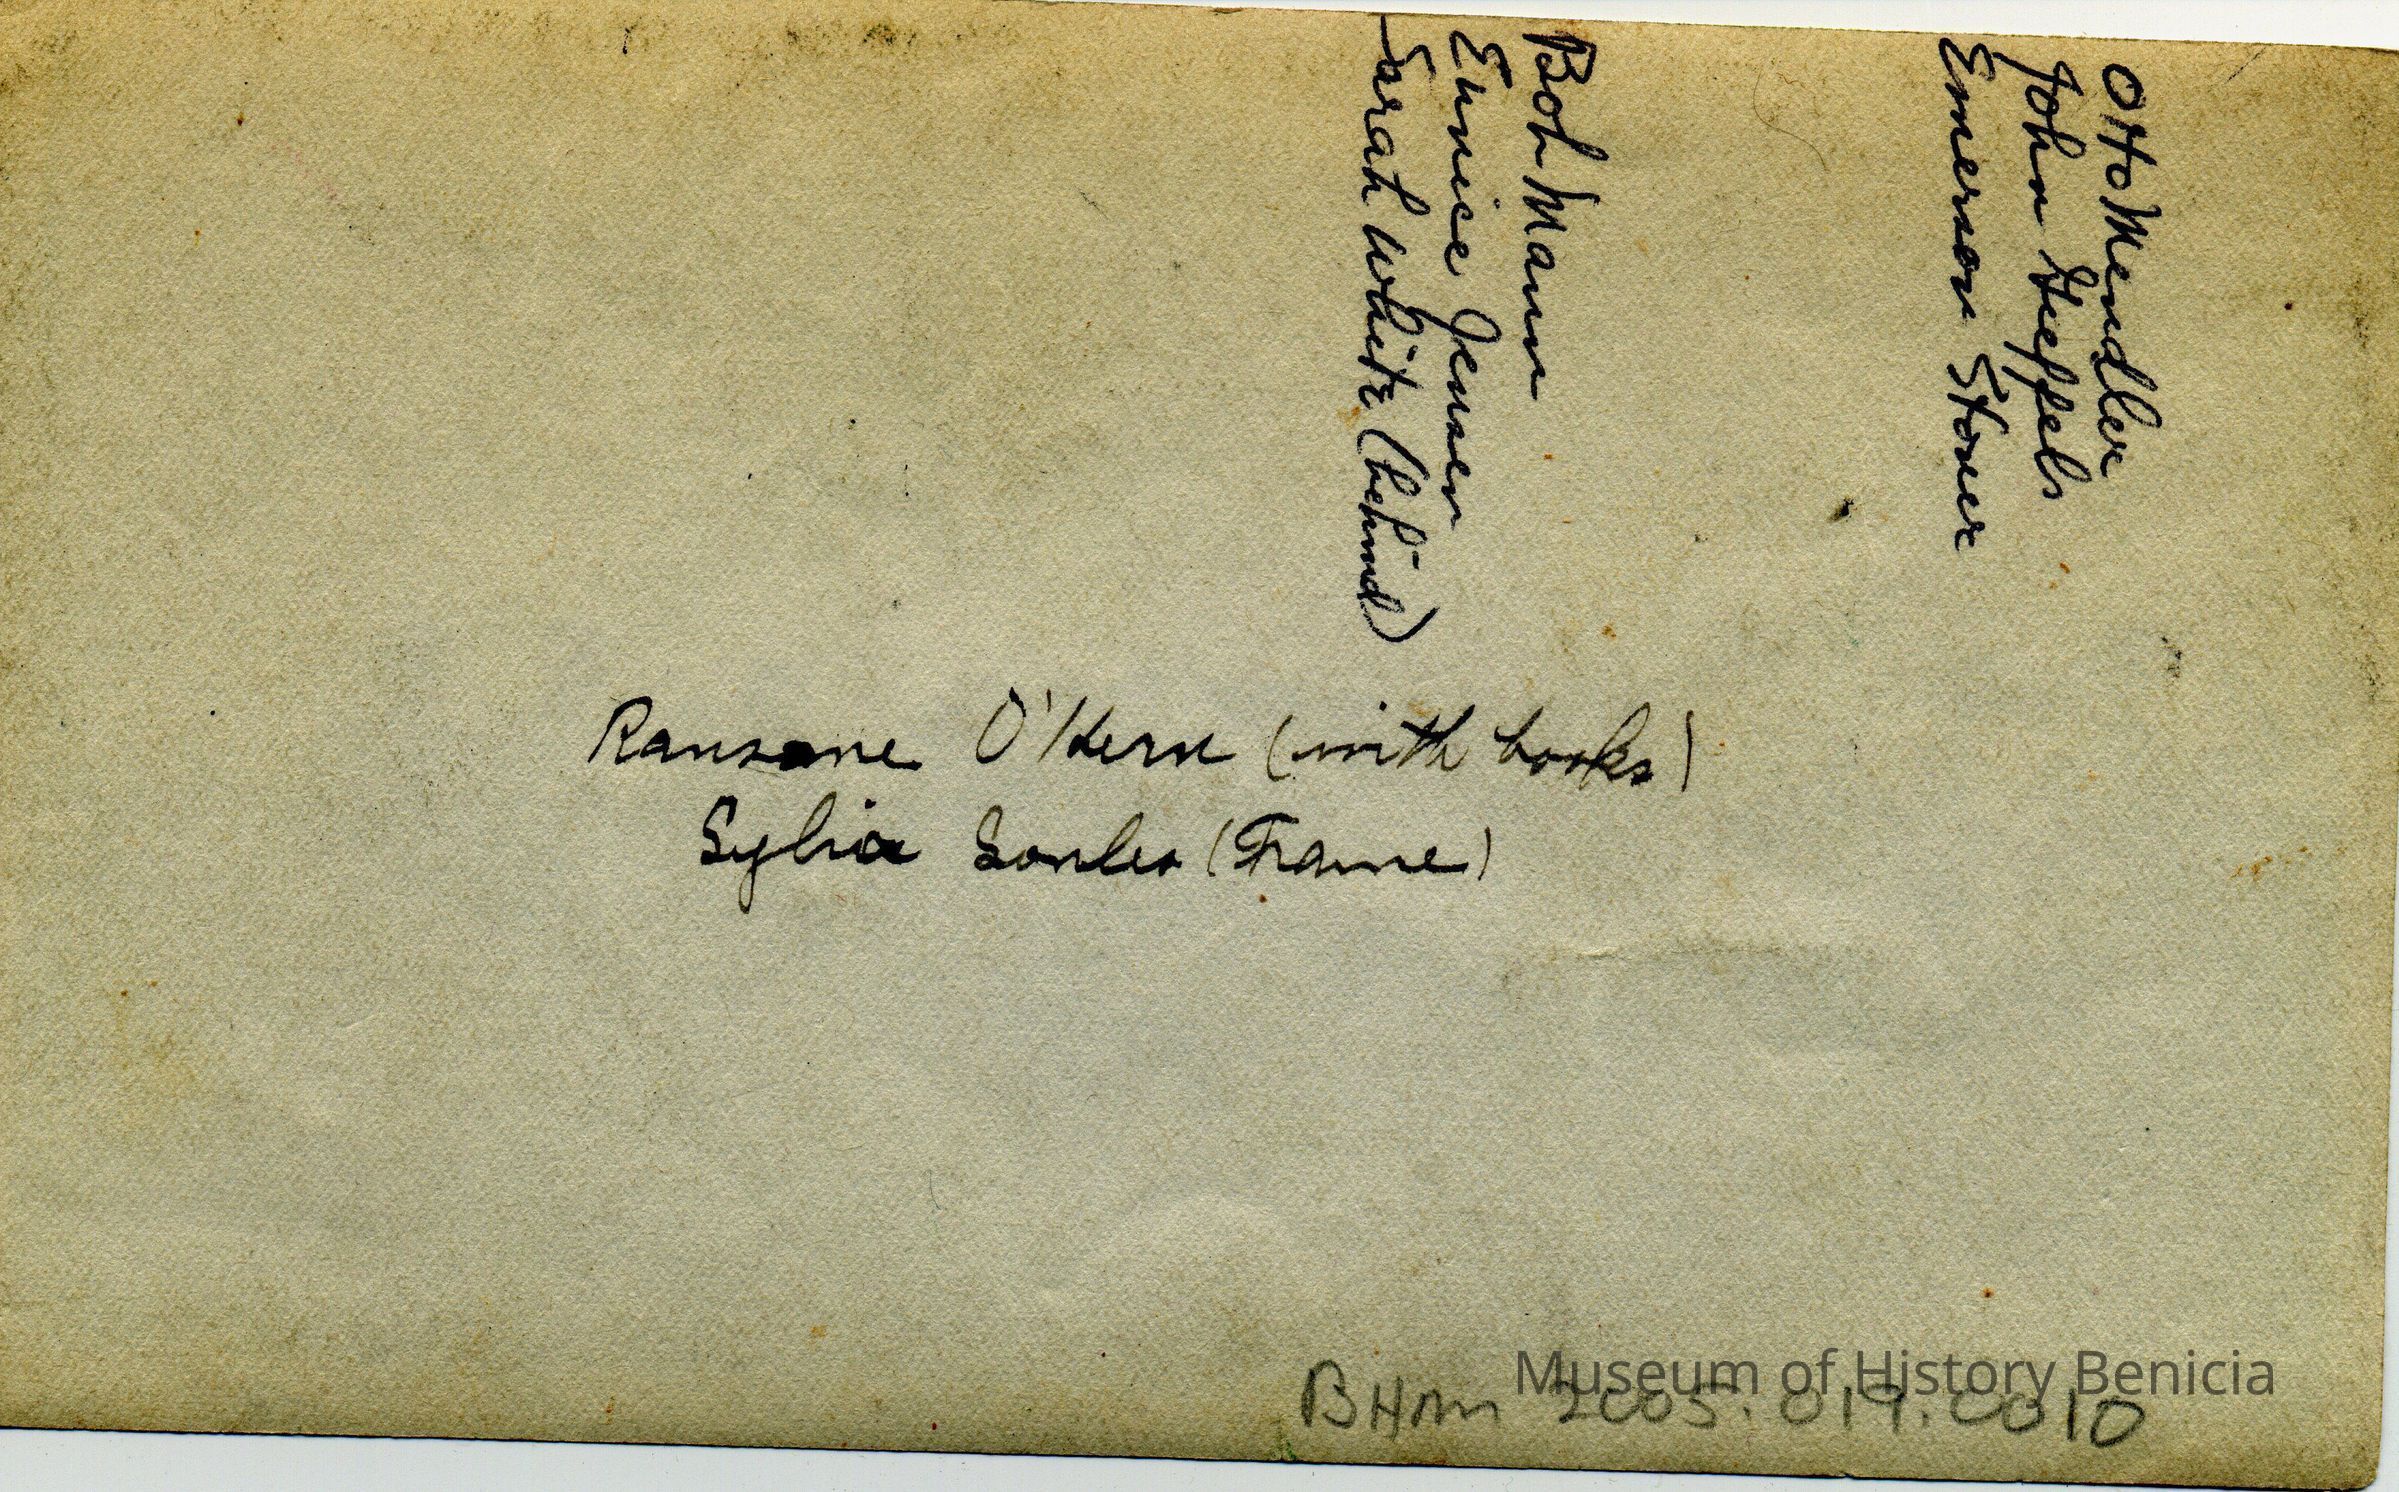 Otto Mendler
John
Emerson Stoner
Bob Mann
Eunice Jensen
Sarah White (behind)
Ransome O'Hern (with books)
Sylvia (Frame)
Museum of History Benicia
BHM 2005.019.0010